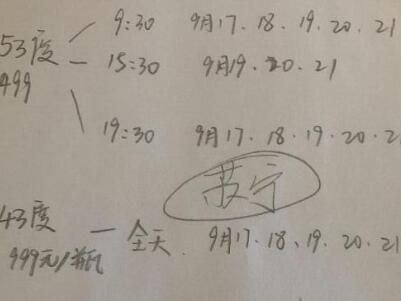 9:30 9月17、18、19、20、21
53度 — 15:30 9月19、20、21
499
19:30 9月17、18、19、20、2
苏宁
43度 — 全天、9月17、18、19、20、21
999元/瓶